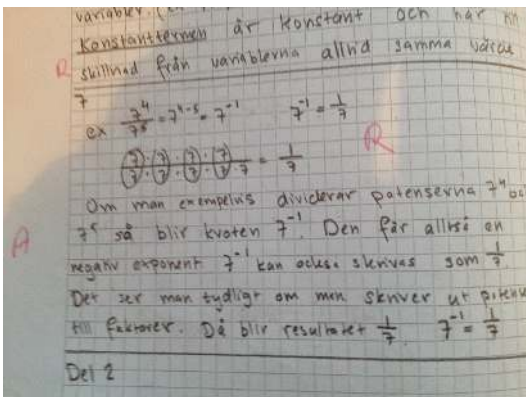 variabler.
Konstanttermen är konstant och har
R skillnad från variablerna alltid samma värde
7
ex 7^4/7^5 = 7^4-5 = 7^-1 7^-1 = 1/7
7·7·7·7/7·7·7·7·7 = 1/7 R
Om man exempelvis dividerar patenserna 7^4
7^5 så blir kvoten 7^-1. Den får alltså en
A
negativ exponent 7^-1 kan också skrivas som 1/7.
Det ser man tydligt om man skriver ut
till faktorer. Då blir resultatet 1/7. 7^-1 = 1/7
Del 2